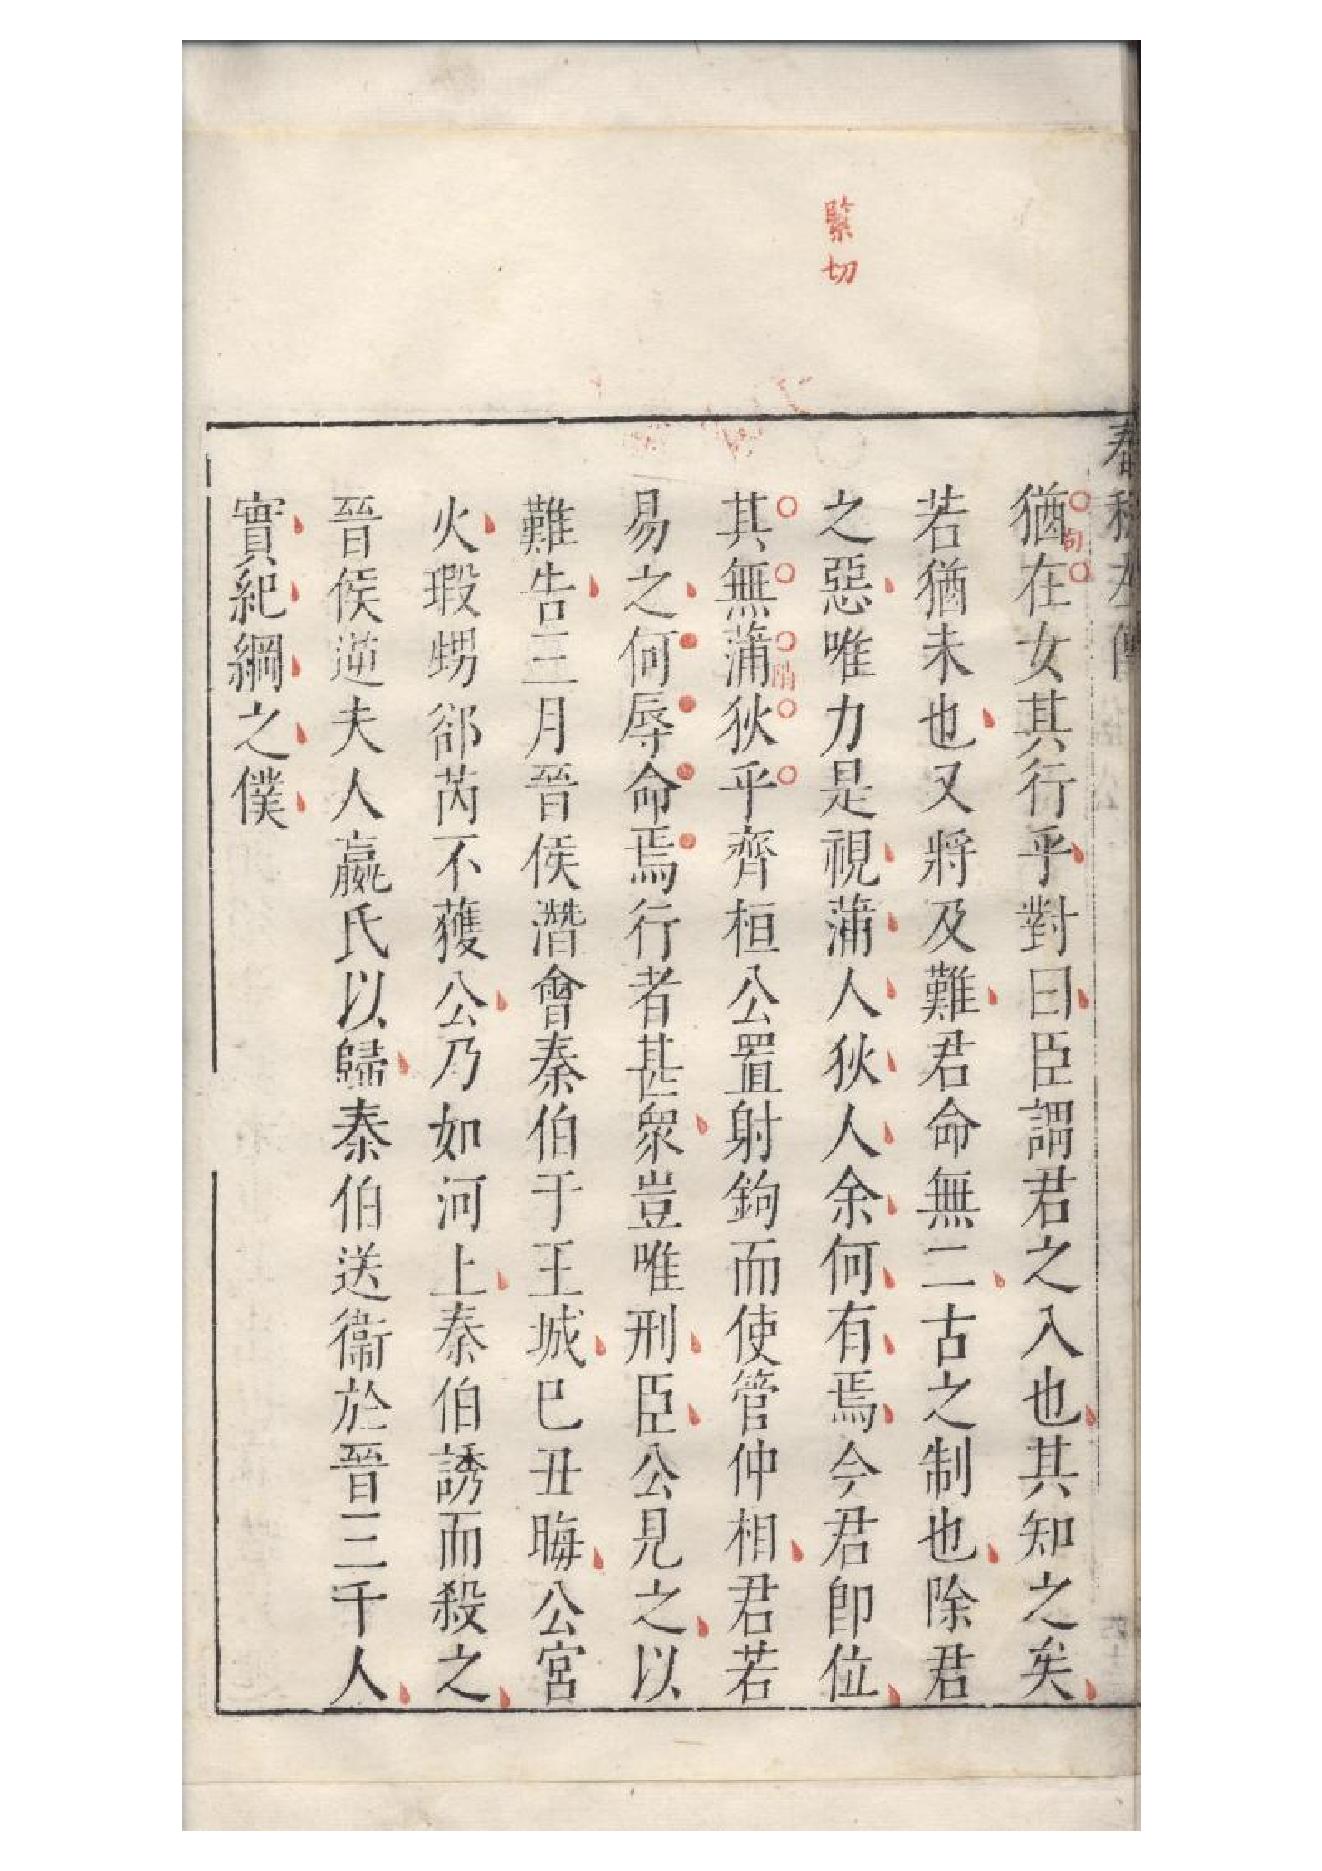 緊切
春秋左傳
猶在女其行乎對曰臣謂君之入也其知之矣
句
若猶未也又將及難君命無二古之制也除君
之惡唯力是視蒲人狄人余何有焉今君卽位
其無蒲狄乎齊桓公置射鉤而使管仲相君若
易之何辱命焉行者甚衆豈唯刑臣公見之以
難告三月晉侯潛會秦伯于王城巳丑晦公宮
火瑕甥郤芮不獲公乃如河上秦伯誘而殺之
晉侯逆夫人嬴氏以歸秦伯送衞於晉三千人
實紀綱之僕